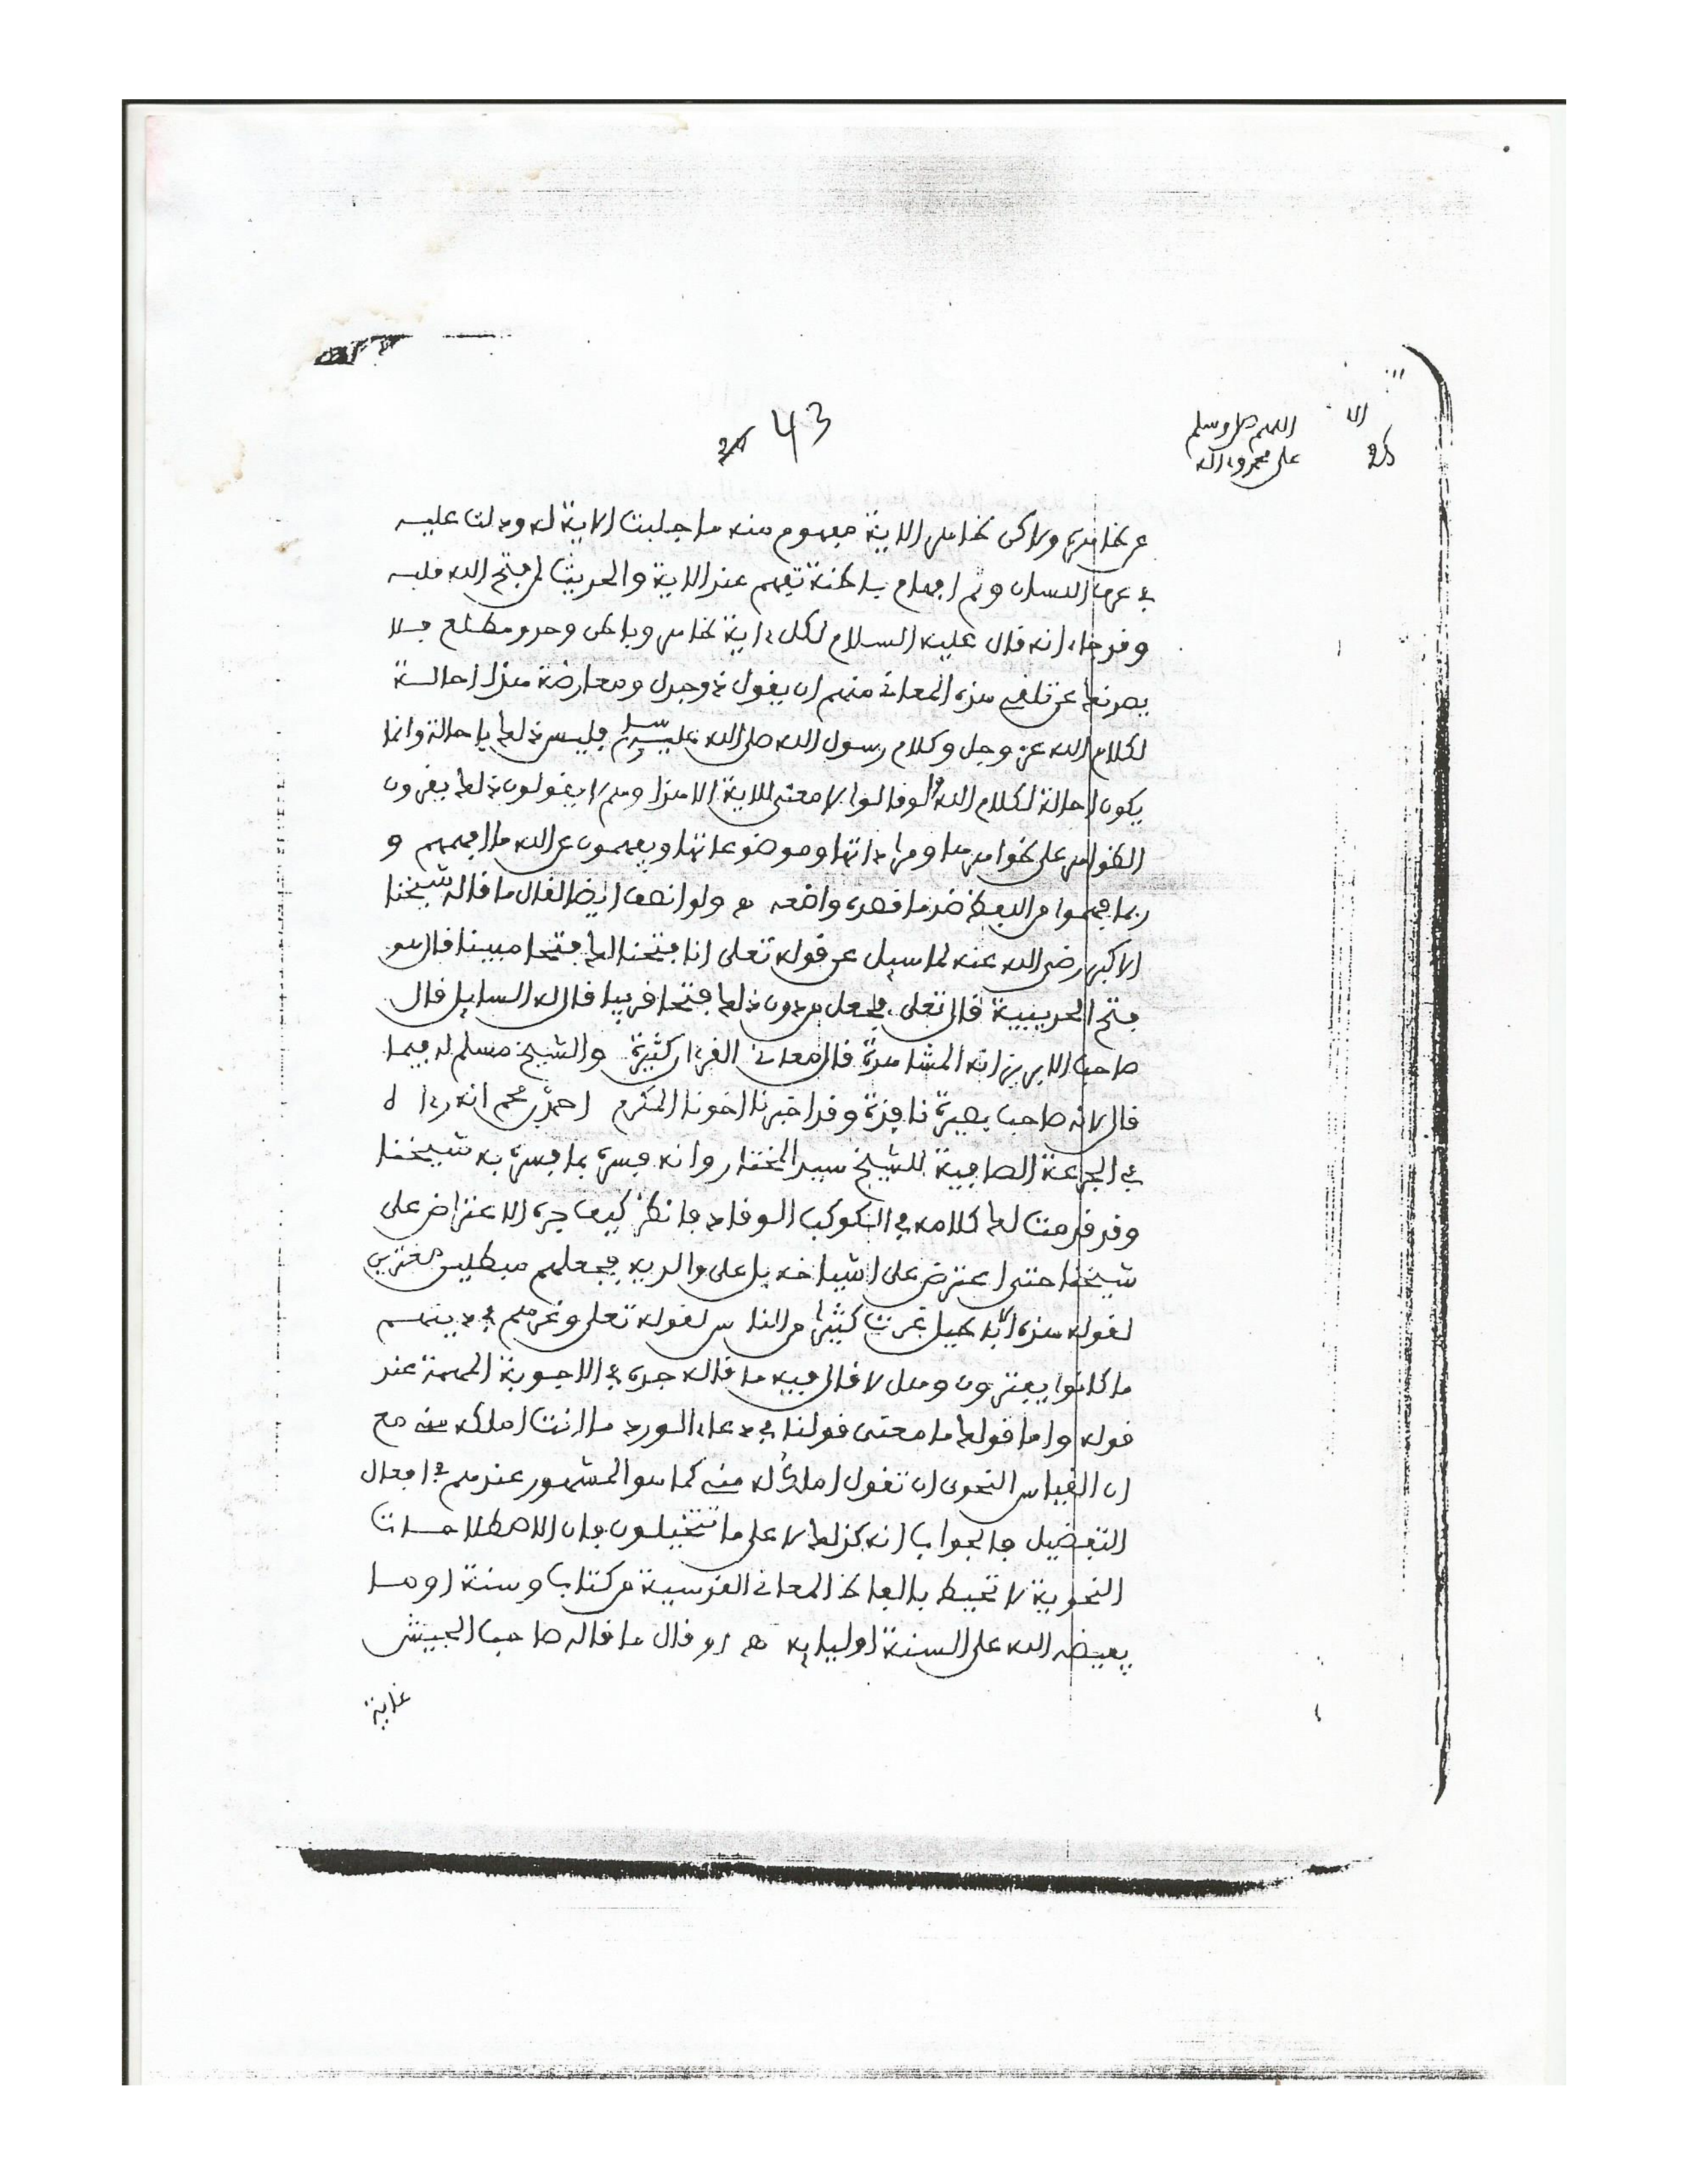 43
اللهم صل وسلم
على محمد وءاله
عن ظاهره ولاكن ظاهر الاية مفهوم منه ما جلبت الاية له ودلت عليه
في عرف اللسان وثم افهام باطنة تفهم عند الاية والحديث لمن فتح الله قلبه
وقد جاء انه قال عليه السلام لكل ءاية ظاهر وباطن وحد ومطلع فلا
يصدنك عن تلقي هذه المعاني منهم ان يقول ذو جدل ومعارضة هذا احالة
لكلام الله عز وجل وكلام رسول الله صلى الله عليه وسلم فليس ذلك باحالة وانما
يكون احالة لكلام الله لو قالوا لا معنى للاية الا هذا وهم لا يقولون ذلك يقرون
الظواهر على ظواهرها ومراداتها وموضوعاتها ويفهمون عن الله ما افهمهم و
ربما فهموا من اللفظ ضد ما قصده واضعه ه ولو انصف ايضا لقال ما قاله شيخنا
الاكبر رضي الله عنه لما سيل عن قوله تعلى انا فتحنا لك فتحا مبينا قال هو
فتح الحديبية قال تعلى فجعل من دون ذلك فتحا قريبا قال له السايل قال
صاحب الابريز انه المشاهدة قال معاني القرءان كثيرة والشيخ مسلم له فيما
قال لانه صاحب بصيرة نافذة وقد اخبرنا اخونا المكرم احمد بن محم انه رءا
في الجرعة الصافية للشيخ سيد المختار وانه فسره بما فسره به شيخنا
وقد قدمت لك كلامه في الكوكب الوقاد فانظر كيف جره الاعتراض على
شيخنا حتى اعترض على اشياخه بل على والديه فجعلهم مبطلين مفترين
لقوله هذه الاباطيل غرت كثيرا من الناس لقوله تعلى وغرهم في دينهم
ما كانوا يفترون وهل لا قال فيه ما قاله جده في الاجوبة المهمة عند
قوله واما قولك ما معنى قولنا في دعاء الورد ما انت املك منه مع
ان القياس النحوي ان تقول املك له منه كما هو المشهور عندهم في افعال
التفضيل فالجواب انه كذلك لا على ما تتخيلون فان الاصطلاحات
النحوية لا تحيط بالفاظ المعاني القدسية من كتاب وسنة او ما
يفيضه الله على السنة اوليايه ه او قال ما قاله صاحب الجيش
غاية